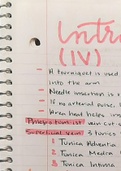 Intr
(IV)
- A technique is used
into the arm
- Needle insertion is
- If no arterial pulse,
- heat helps
Phlebotomist vein
Superficial vein 3
1 Tunica Adventia
2 Tunica Media
3 Tunica Intima